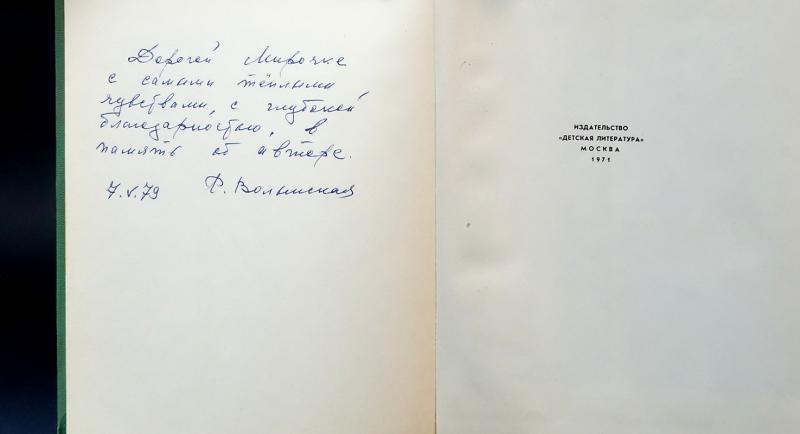 Дорогой Мирочке
с самыми тёплыми
чувствами, с глубокой
благодарностью, в
память об авторе.
7.V.79 Ф. Волынская
ИЗДАТЕЛЬСТВО
«ДЕТСКАЯ ЛИТЕРАТУРА»
МОСКВА
1971